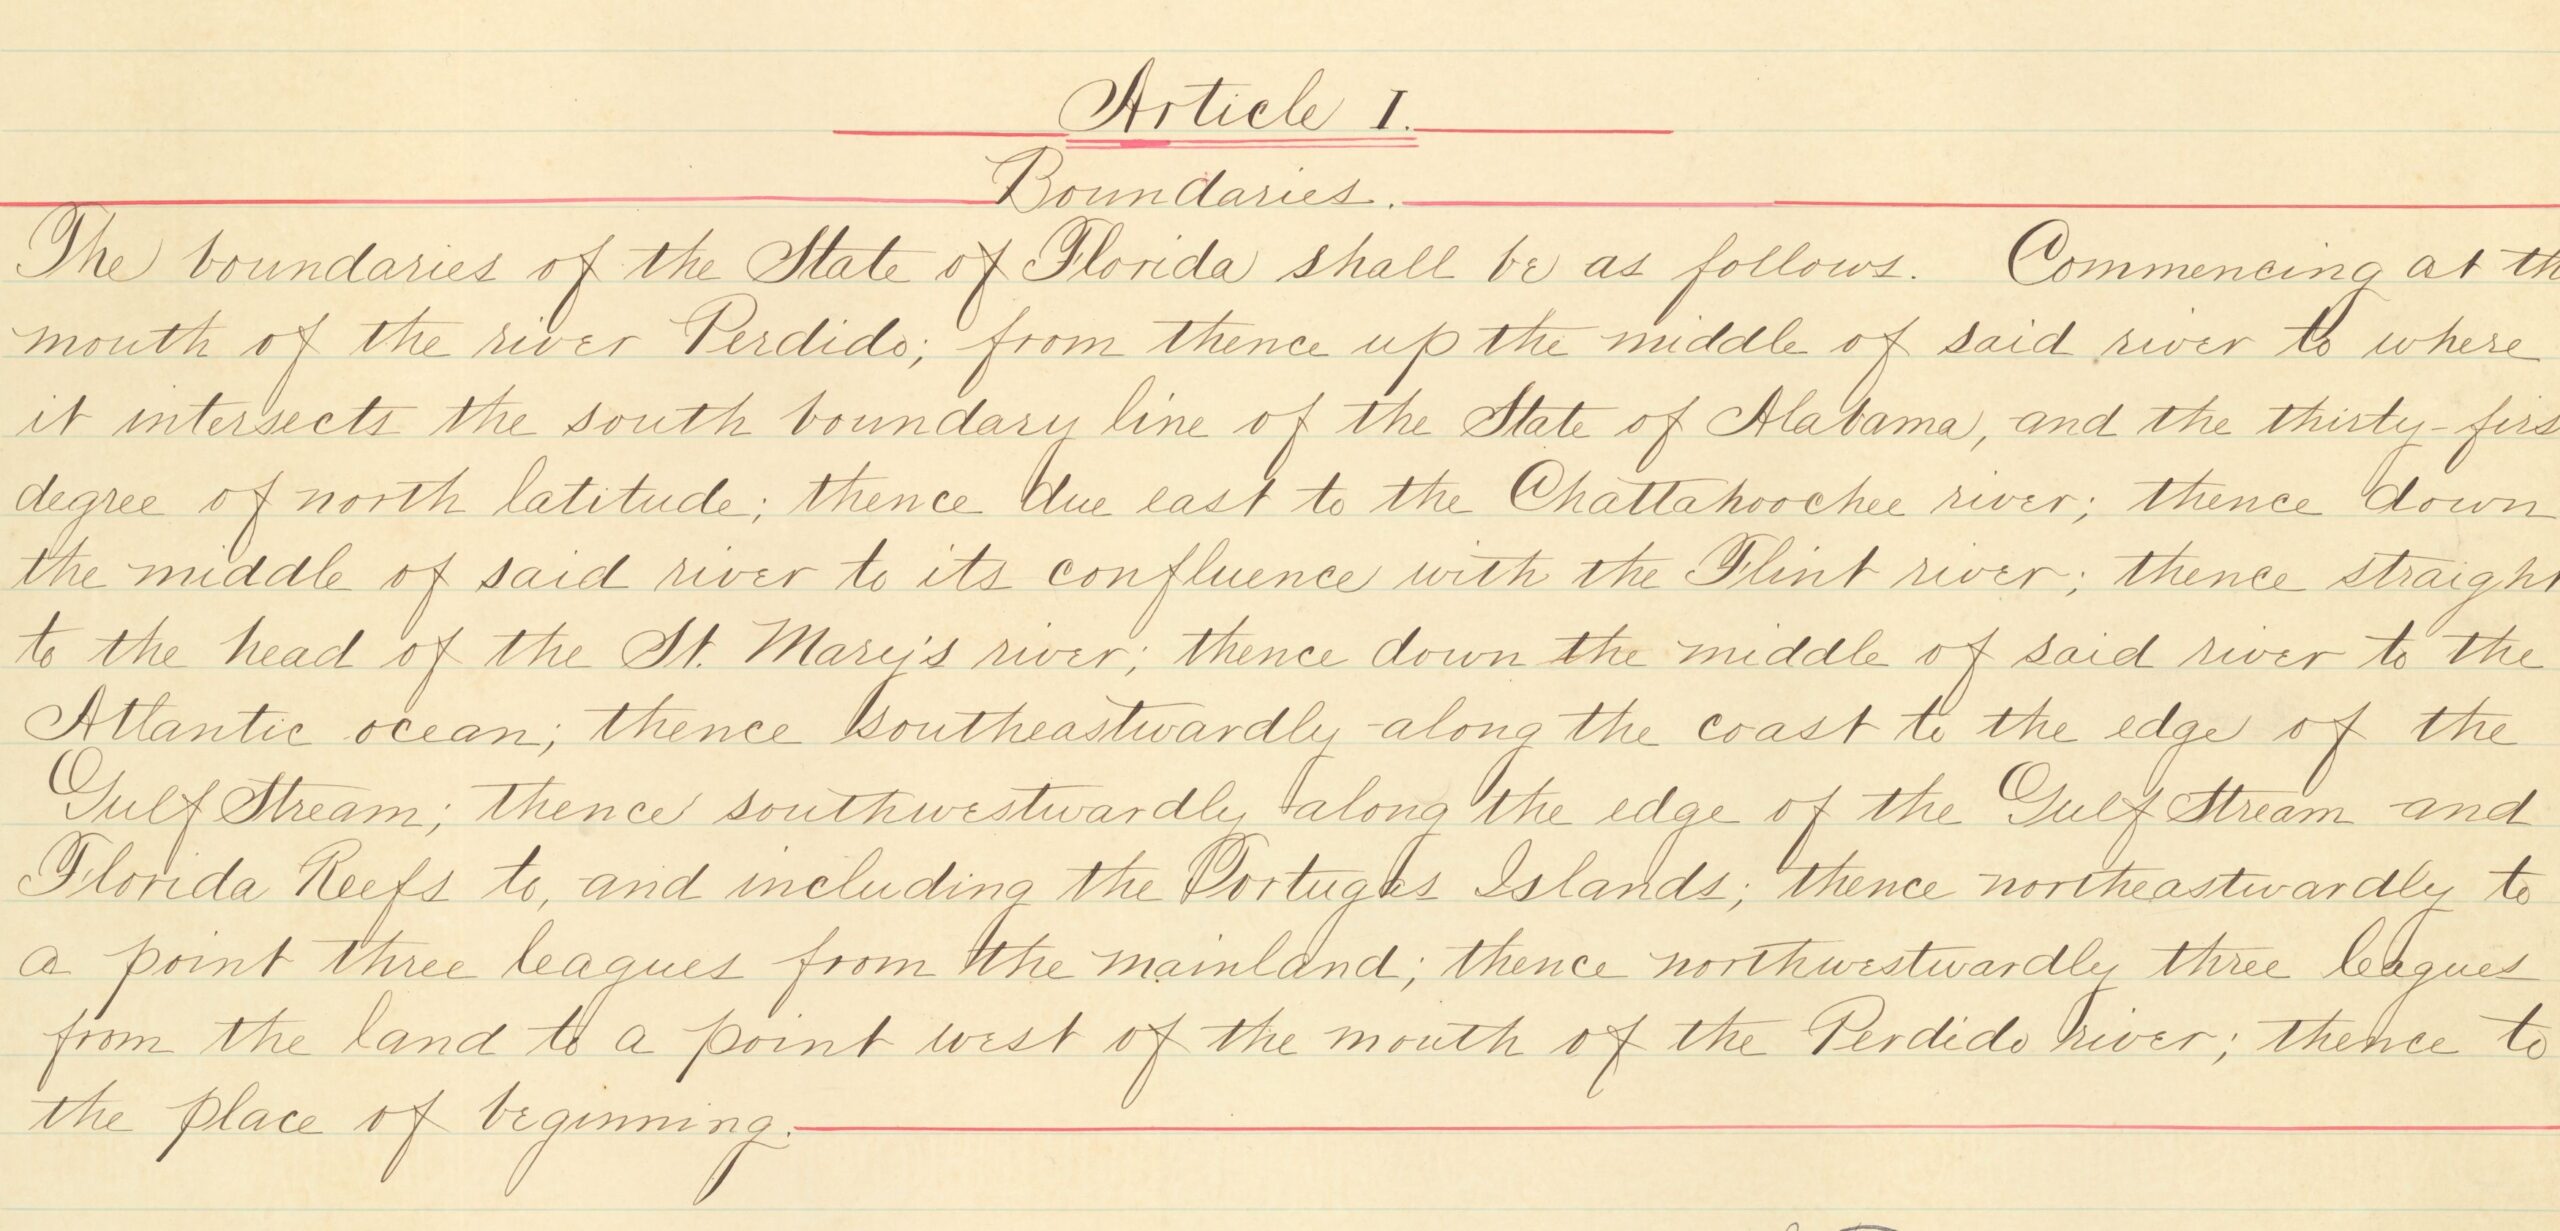 Article I.
Boundaries.
The boundaries of the State of Florida shall be as follows. Commencing at th
mouth of the river Perdido; from thence up the middle of said river to where
it intersects the south boundary line of the State of Alabama, and the thirty-firs
degree of north latitude; thence due east to the Chattahoochee river; thence down
the middle of said river to its confluence with the Flint river; thence straight
to the head of the St. Mary's river; thence down the middle of said river to the
Atlantic ocean; thence southeastwardly along the coast to the edge of the
Gulf Stream; thence southwestwardly along the edge of the Gulf Stream and
Florida Reefs to, and including the Tortugas Islands; thence northeastwardly to
a point three leagues from the mainland; thence northwestwardly three leagues
from the land to a point west of the mouth of the Perdido river; thence to
the place of beginning.